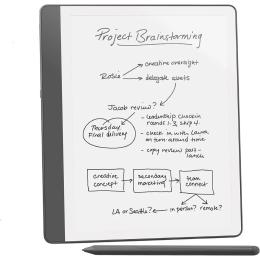 Project Brainstorming
creative oversight
Rosie
delegate assets
Jacob review?
Thursday
Final delivery
- leadership check in
rounds 1-3, skip 4
- check in with Laura
on turn around time
- copy review post-
launch
creative
concept
secondary
marketing
team
connect
LA or Seattle?
in person?
remote?